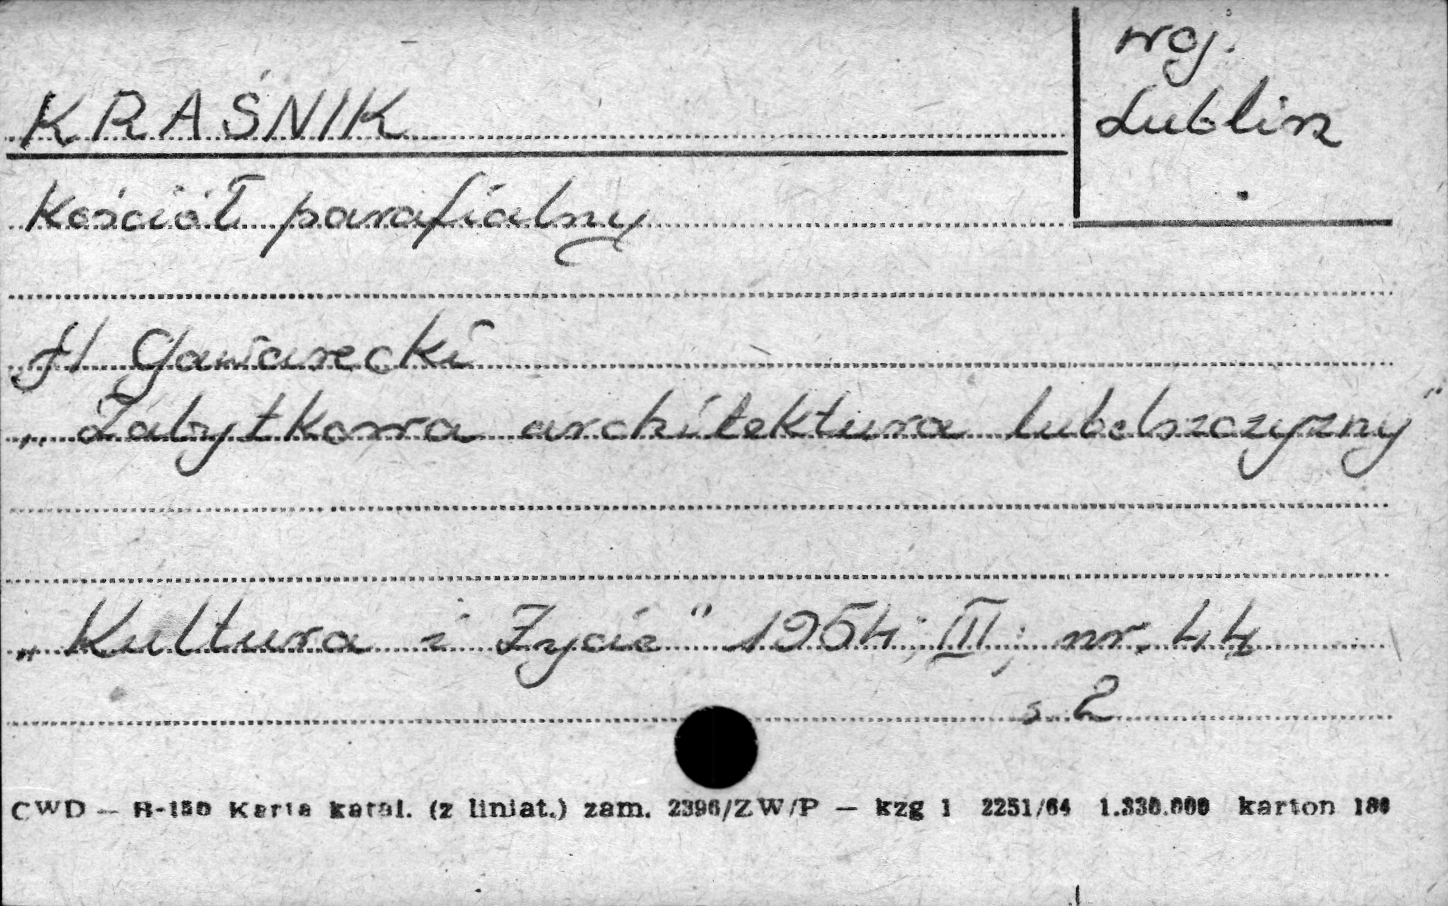 woj.
Lublin
KRAŚNIK
Kościół parafialny
H Gawarecki
„Zabytkowa architektura lubelszczyzny"
„Kultura i Życie" 1954; III; nr. 44
s 2
CWD — B-150 Karta katal. (z liniat.) zam. 2396/ZW/P — kzg 1 2251/64 1.330.000 karton 180